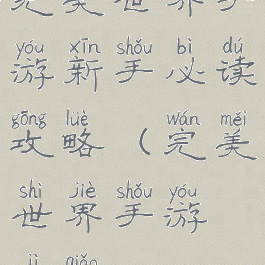 完美世界手
yóu xīn shǒu bì dú
游新手必读
gōng lüè wán měi
攻略（完美
shì jiè shǒu yóu
世界手游
jì qiǎo